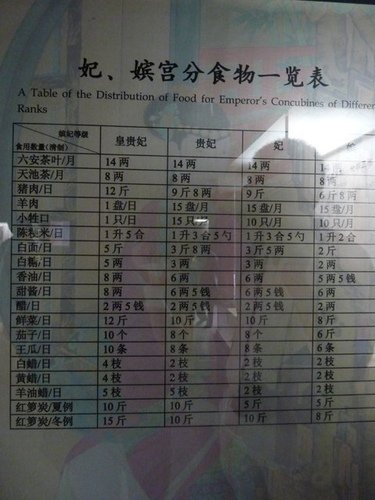 妃、嫔宫分食物一览表
A Table of the Distribution of Food for Emperor's Concubines of Different
Ranks
嫔妃等级
食用数量(清制) 皇贵妃 贵妃 妃
六安茶叶/月 14两 14两 14两 14两
天池茶/月 8两 8两 8两 8两
猪肉/日 12斤 9斤8两 9斤 6斤8两
羊肉 1盘/日 15盘/月 15盘/月 15盘/月
小牲口 1只/日 15只/月 10只/月 10只/月
陈粳米/日 1升5合 1升3合5勺 1升3合5勺 1升2合
白面/日 5斤 3斤8两 3斤5两 2斤
白糖/日 5两 3两 3两 2两
香油/日 8两 6两 6两 5两5钱
甜酱/日 8两 6两5钱 6两5钱 6两
醋/日 2两5钱 2两5钱 2两5钱 2两
鲜菜/日 12斤 10斤 10斤 8斤
茄子/日 10个 8个 8个 6个
王瓜/日 10条 8条 8条 6条
白蜡/日 4枝 2枝 2枝 2枝
黄蜡/日 4枝 2枝 2枝 2枝
羊油蜡/日 5枝 5枝 2枝 2枝
红箩炭/夏例 10斤 10斤 5斤 5斤
红箩炭/冬例 15斤 10斤 10斤 8斤